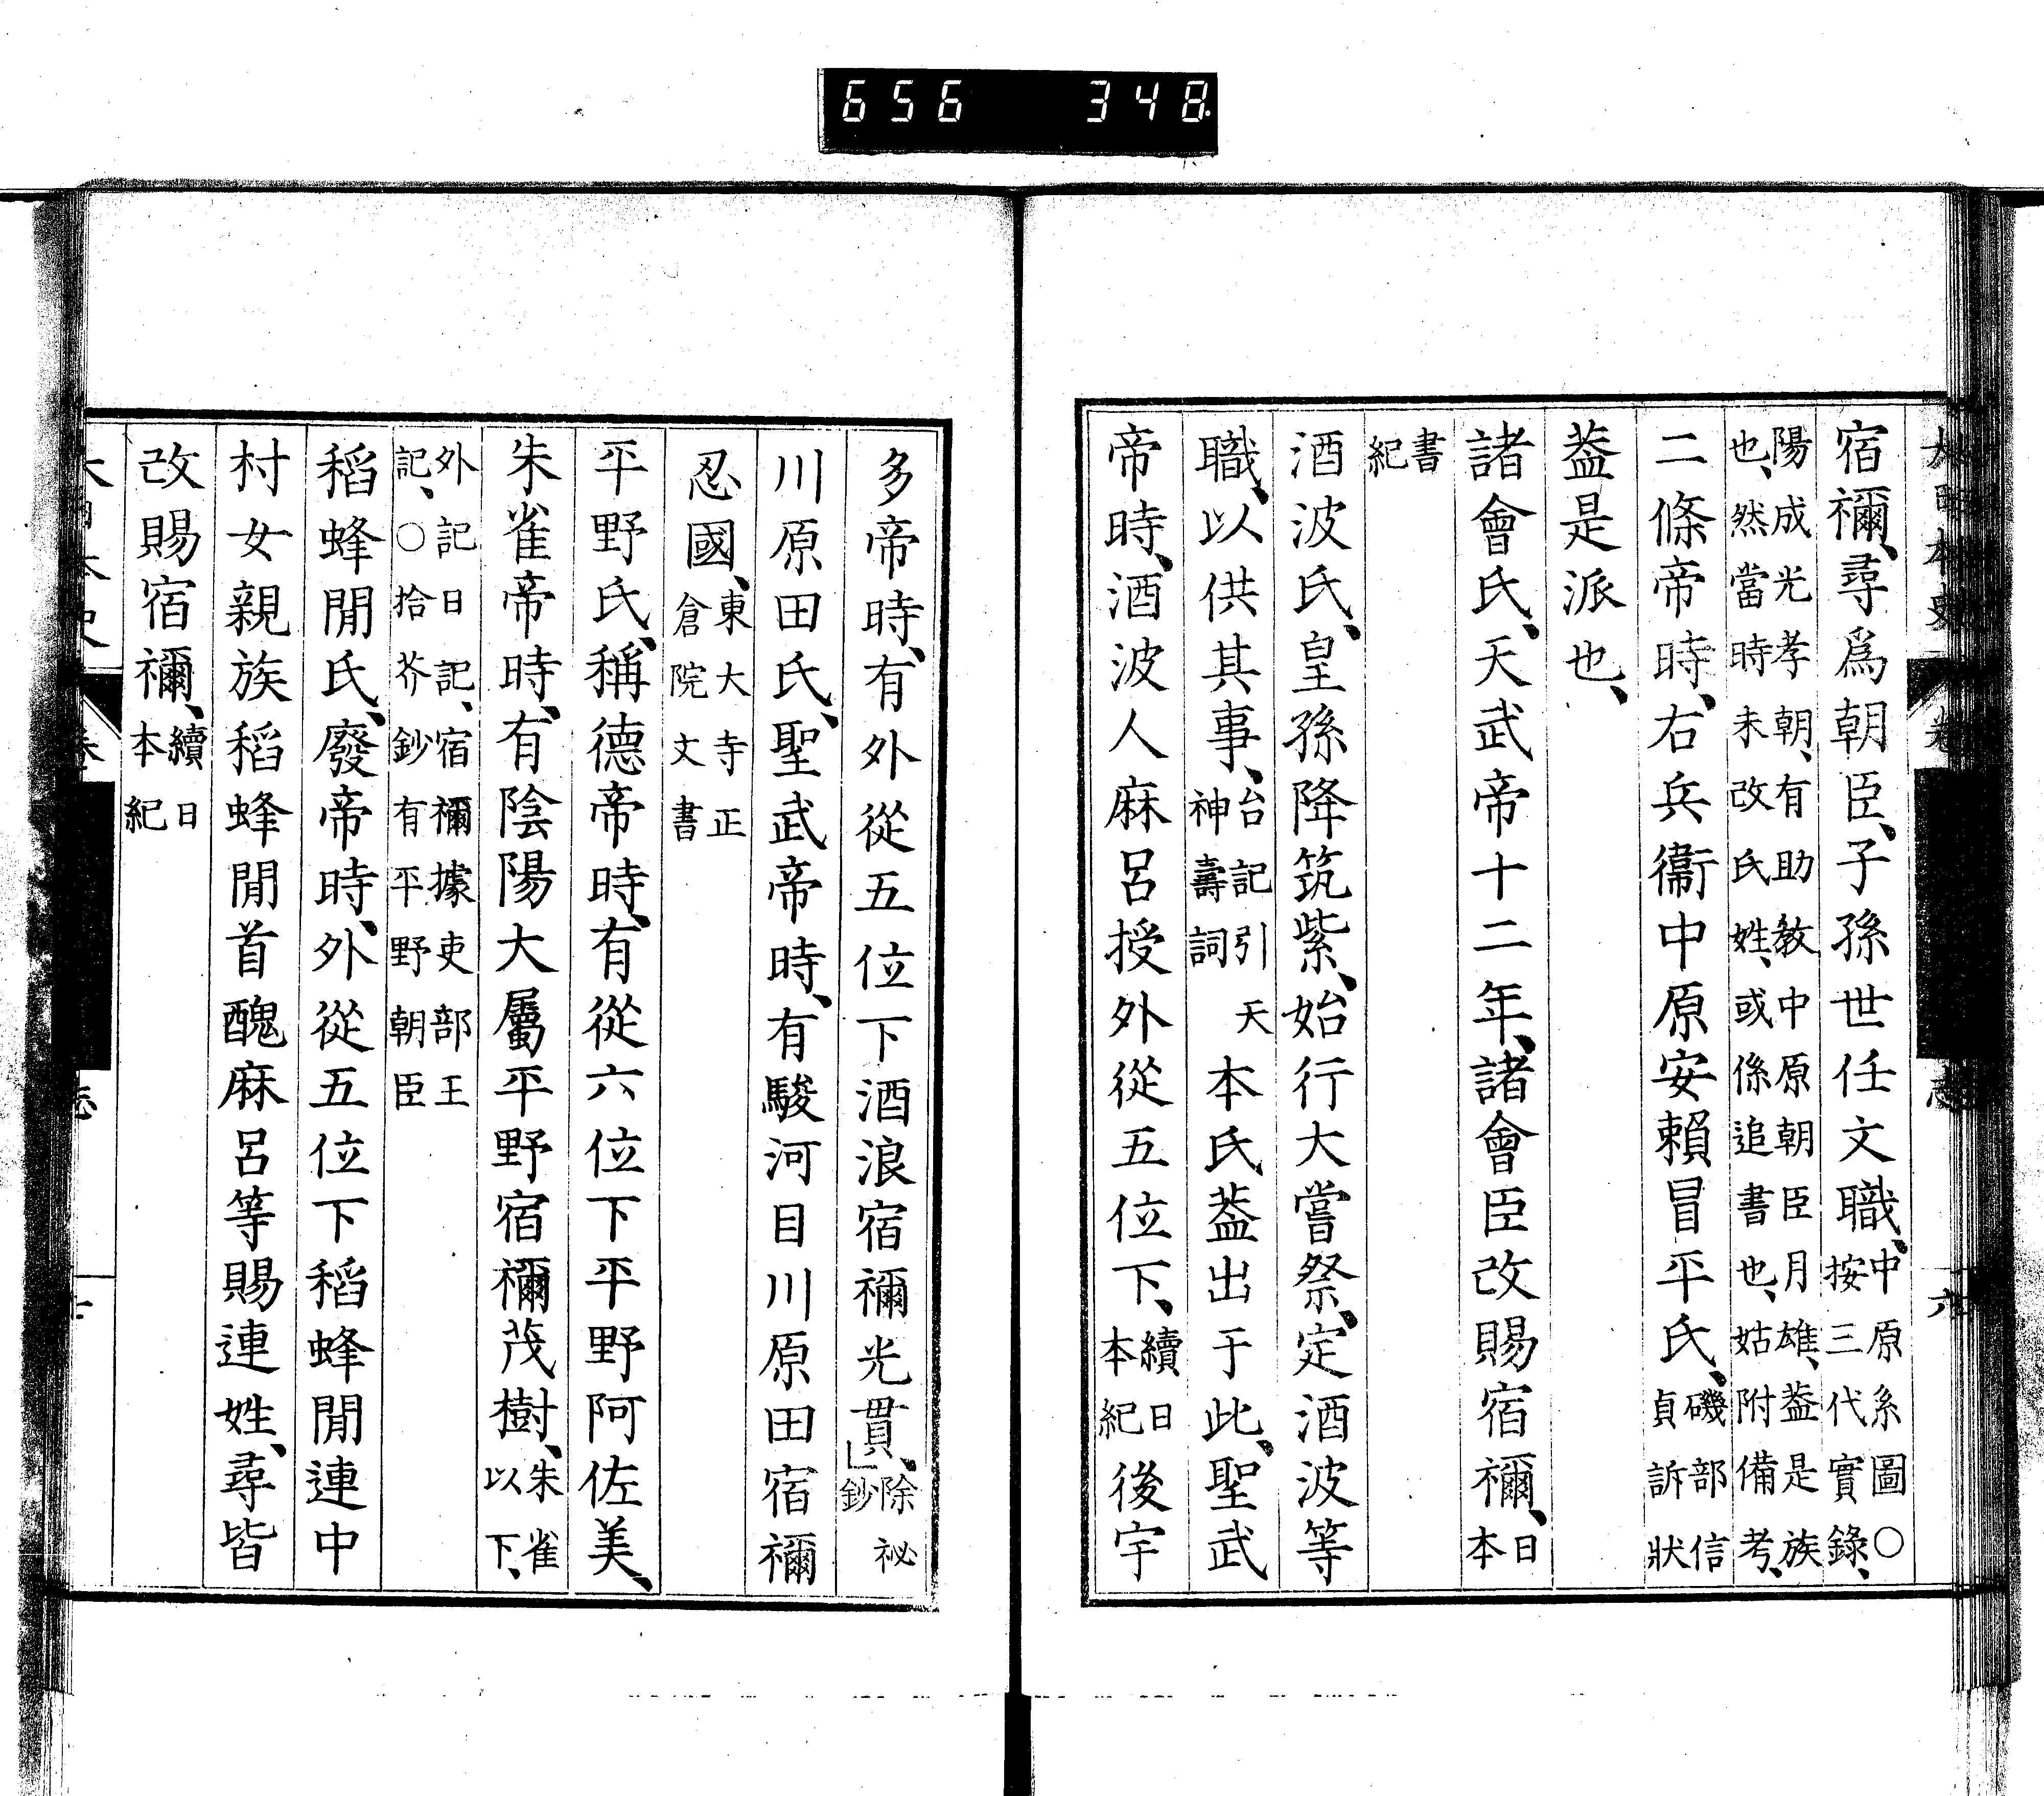 656 348
宿禰、尋爲朝臣、子孫世任文職、中原系圖〇按三代實錄、
陽成光孝朝、有助教中原朝臣月雄、葢是族也、然當時未改氏姓、或係追書也、姑附備考、
二條帝時、右兵衞中原安賴冒平氏、磯部信貞訴狀
葢是派也、
諸會氏、天武帝十二年、諸會臣改賜宿禰、日本
書紀
酒波氏、皇孫降筑紫、始行大嘗祭、定酒波等
職、以供其事、台記引天神壽詞本氏葢出于此、聖武
帝時、酒波人麻呂授外從五位下、續日本紀後宇
多帝時、有外從五位下酒浪宿禰光貫、除祕鈔
川原田氏、聖武帝時、有駿河目川原田宿禰
忍國、東大寺正倉院文書
平野氏、稱德帝時、有從六位下平野阿佐美、
朱雀帝時、有陰陽大屬平野宿禰茂樹、朱雀以下、
外記日記、宿禰據吏部王記、〇拾芥鈔有平野朝臣
稻蜂閒氏、廢帝時、外從五位下稻蜂閒連中
村女親族稻蜂閒首醜麻呂等賜連姓、尋皆
改賜宿禰、續日本紀